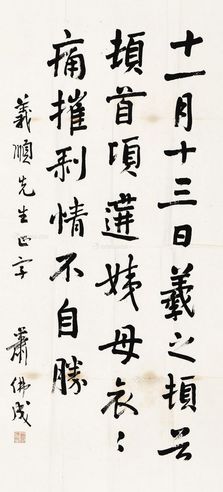 十一月十三日羲之頓首
頓首頃遘姨母哀〻
痛摧剥情不自勝
義順先生正字
蕭佛成